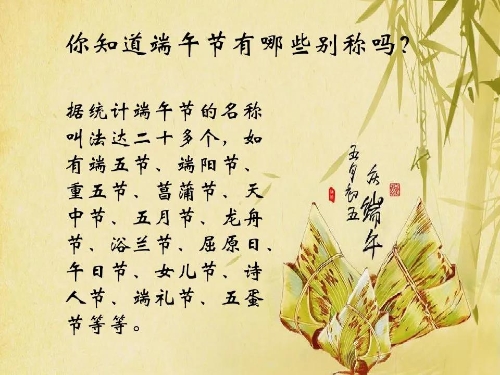 你知道端午节有哪些别称吗？
据统计端午节的名称
叫法达二十多个，如
有端五节、端阳节、
重五节、菖蒲节、天
中节、五月节、龙舟
节、浴兰节、屈原日、
午日节、女儿节、诗
人节、端礼节、五蛋
节等等。
端午
五月初五